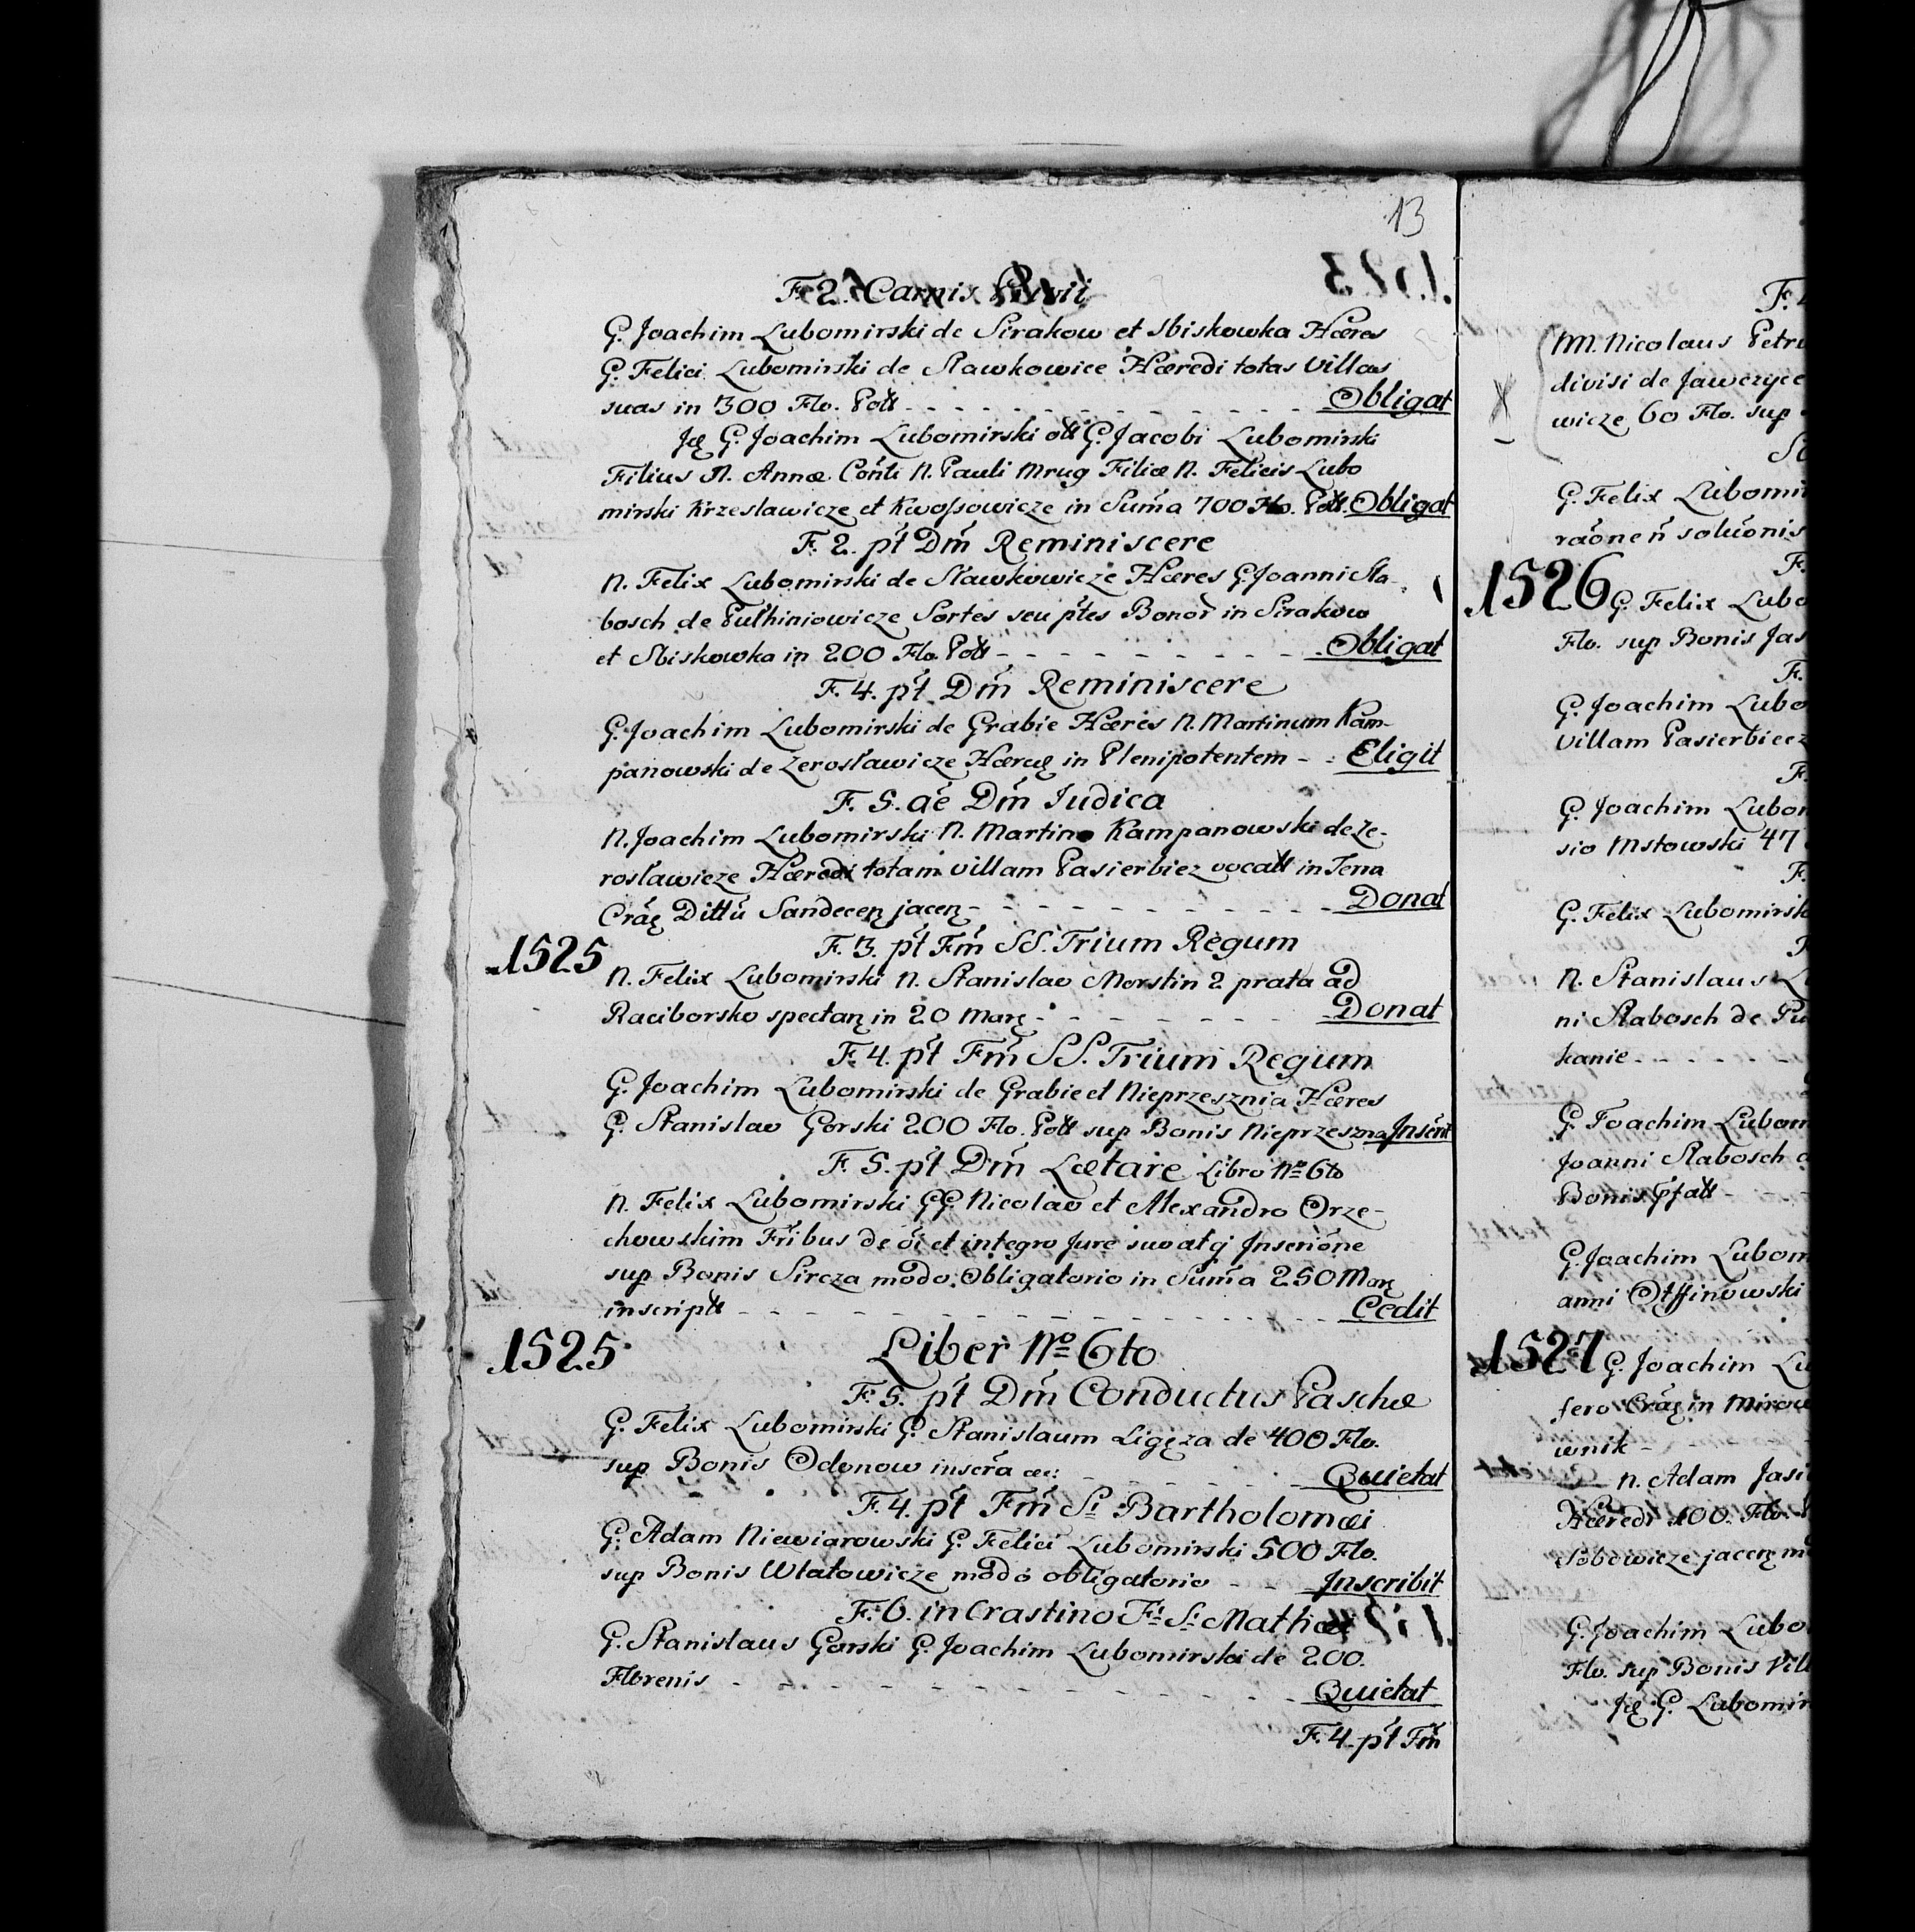 13
F. 2. Carnis Privii
G. Joachim Lubomirski de Sirakow et Sbiskowka Hæres
G. Felici Lubomirski de Sławkowice Hæredi totas Villas
suas in 300 Flo. Poll - - - Obligat
Jdę G. Joachim Lubomirski oll G. Jacobi Lubomirski
Filius N. Annæ Conti N. Pauli Mrug Filiæ N. Felicis Lubo
mirski Krzesławicze et Kwossowicze in Suma 700 Flo. Poll. Obligat
F. 2. pt Dm Reminiscere
N. Felix Lubomirski de Sławkowicze Hæres G. Joanni Sla-
bosch de Puthiniowicze Sortes seu ptes Bonor in Sirakow
et Sbiskowka in 200 Flo. Poll - - - Obligat
F. 4. pt Dm Reminiscere
G. Joachim Lubomirski de Grabie Hæres N. Martinum Kam-
panowski de Zerosławicze Hæreę in Plenipotentem - - Eligit
F. 5. ae Dm Judica
N. Joachim Lubomirski N. Martino Kampanowski de Ze-
rosławicze Hæredi totam villam Pasierbiez vocatt in Terra
Cráę Dittu Sandeceꝝ jaceꝝ - - - Donat
1525 F. 3. pt Fm SS. Trium Regum
N. Felix Lubomirski N. Stanislao Morstin 2 prata ad
Raciborsko spectaꝝ in 20 Marę - - - Donat
F. 4. pt Fm SS. Trium Regum
G. Joachim Lubomirski de Grabie et Nieprzesznia Hæres
G. Stanislao Gorski 200 Flo. Poll sup Bonis Nieprzeszna Inscrit
F. 5. pt Dm Lætare Libro No 6to
N. Felix Lubomirski GG. Nicolao et Alexandro Orze-
chowskim Fribus de oi et integro Jure suo atq Inscrione
sup Bonis Sircza modo Obligatorio in Suma 250 Marę
inscriptt - - - Cedit
1525 Liber No 6to
F. 5. pt Dm Conductus Paschæ
G. Felix Lubomirski G. Stanislaum Ligęza de 400 Flo.
sup Bonis Odonow inscra - - - Quietat
F. 4. pt Fm Si Bartholomæi
G. Adam Niewiarowski G. Felici Lubomirski 500 Flo.
sup Bonis Wtatowicze modo obligatorio - - Inscribit
F. 6. in Crastino Fi Si Mathæi
G. Stanislaus Gorski G. Joachim Lubomirski de 200.
Florenis - - - Quietat
F. 4. pt Fm
NN. Nicolaus Petru
divisi de Jawczyce
wicze 60 Flo. sup
G. Felix Lubomir
raone n soluonis
F.
1526 G. Felix Lubo
Flo. sup Bonis Jas
F.
G. Joachim Lubo
Villam Pasierbiecz
F.
G. Joachim Lubom
sio Mstowski 47
F.
G. Felix Lubomirsk
N. Stanislaus L
ni Slabosch de Pu
kanie - - -
G. Joachim Lubom
Joanni Slabosch d
Bonis Pfatt -
G. Joachim Lubom
anni Otffinowski
1527 G. Joachim Lu
fero Cráę in Mirow
wnik -
N. Adam Jasi
Hæredi 100. Flo.
Sobowicze jaceꝝ m
G. Joachim Lubo
Flo. sup Bonis Vill
Jdę G. Lubomir